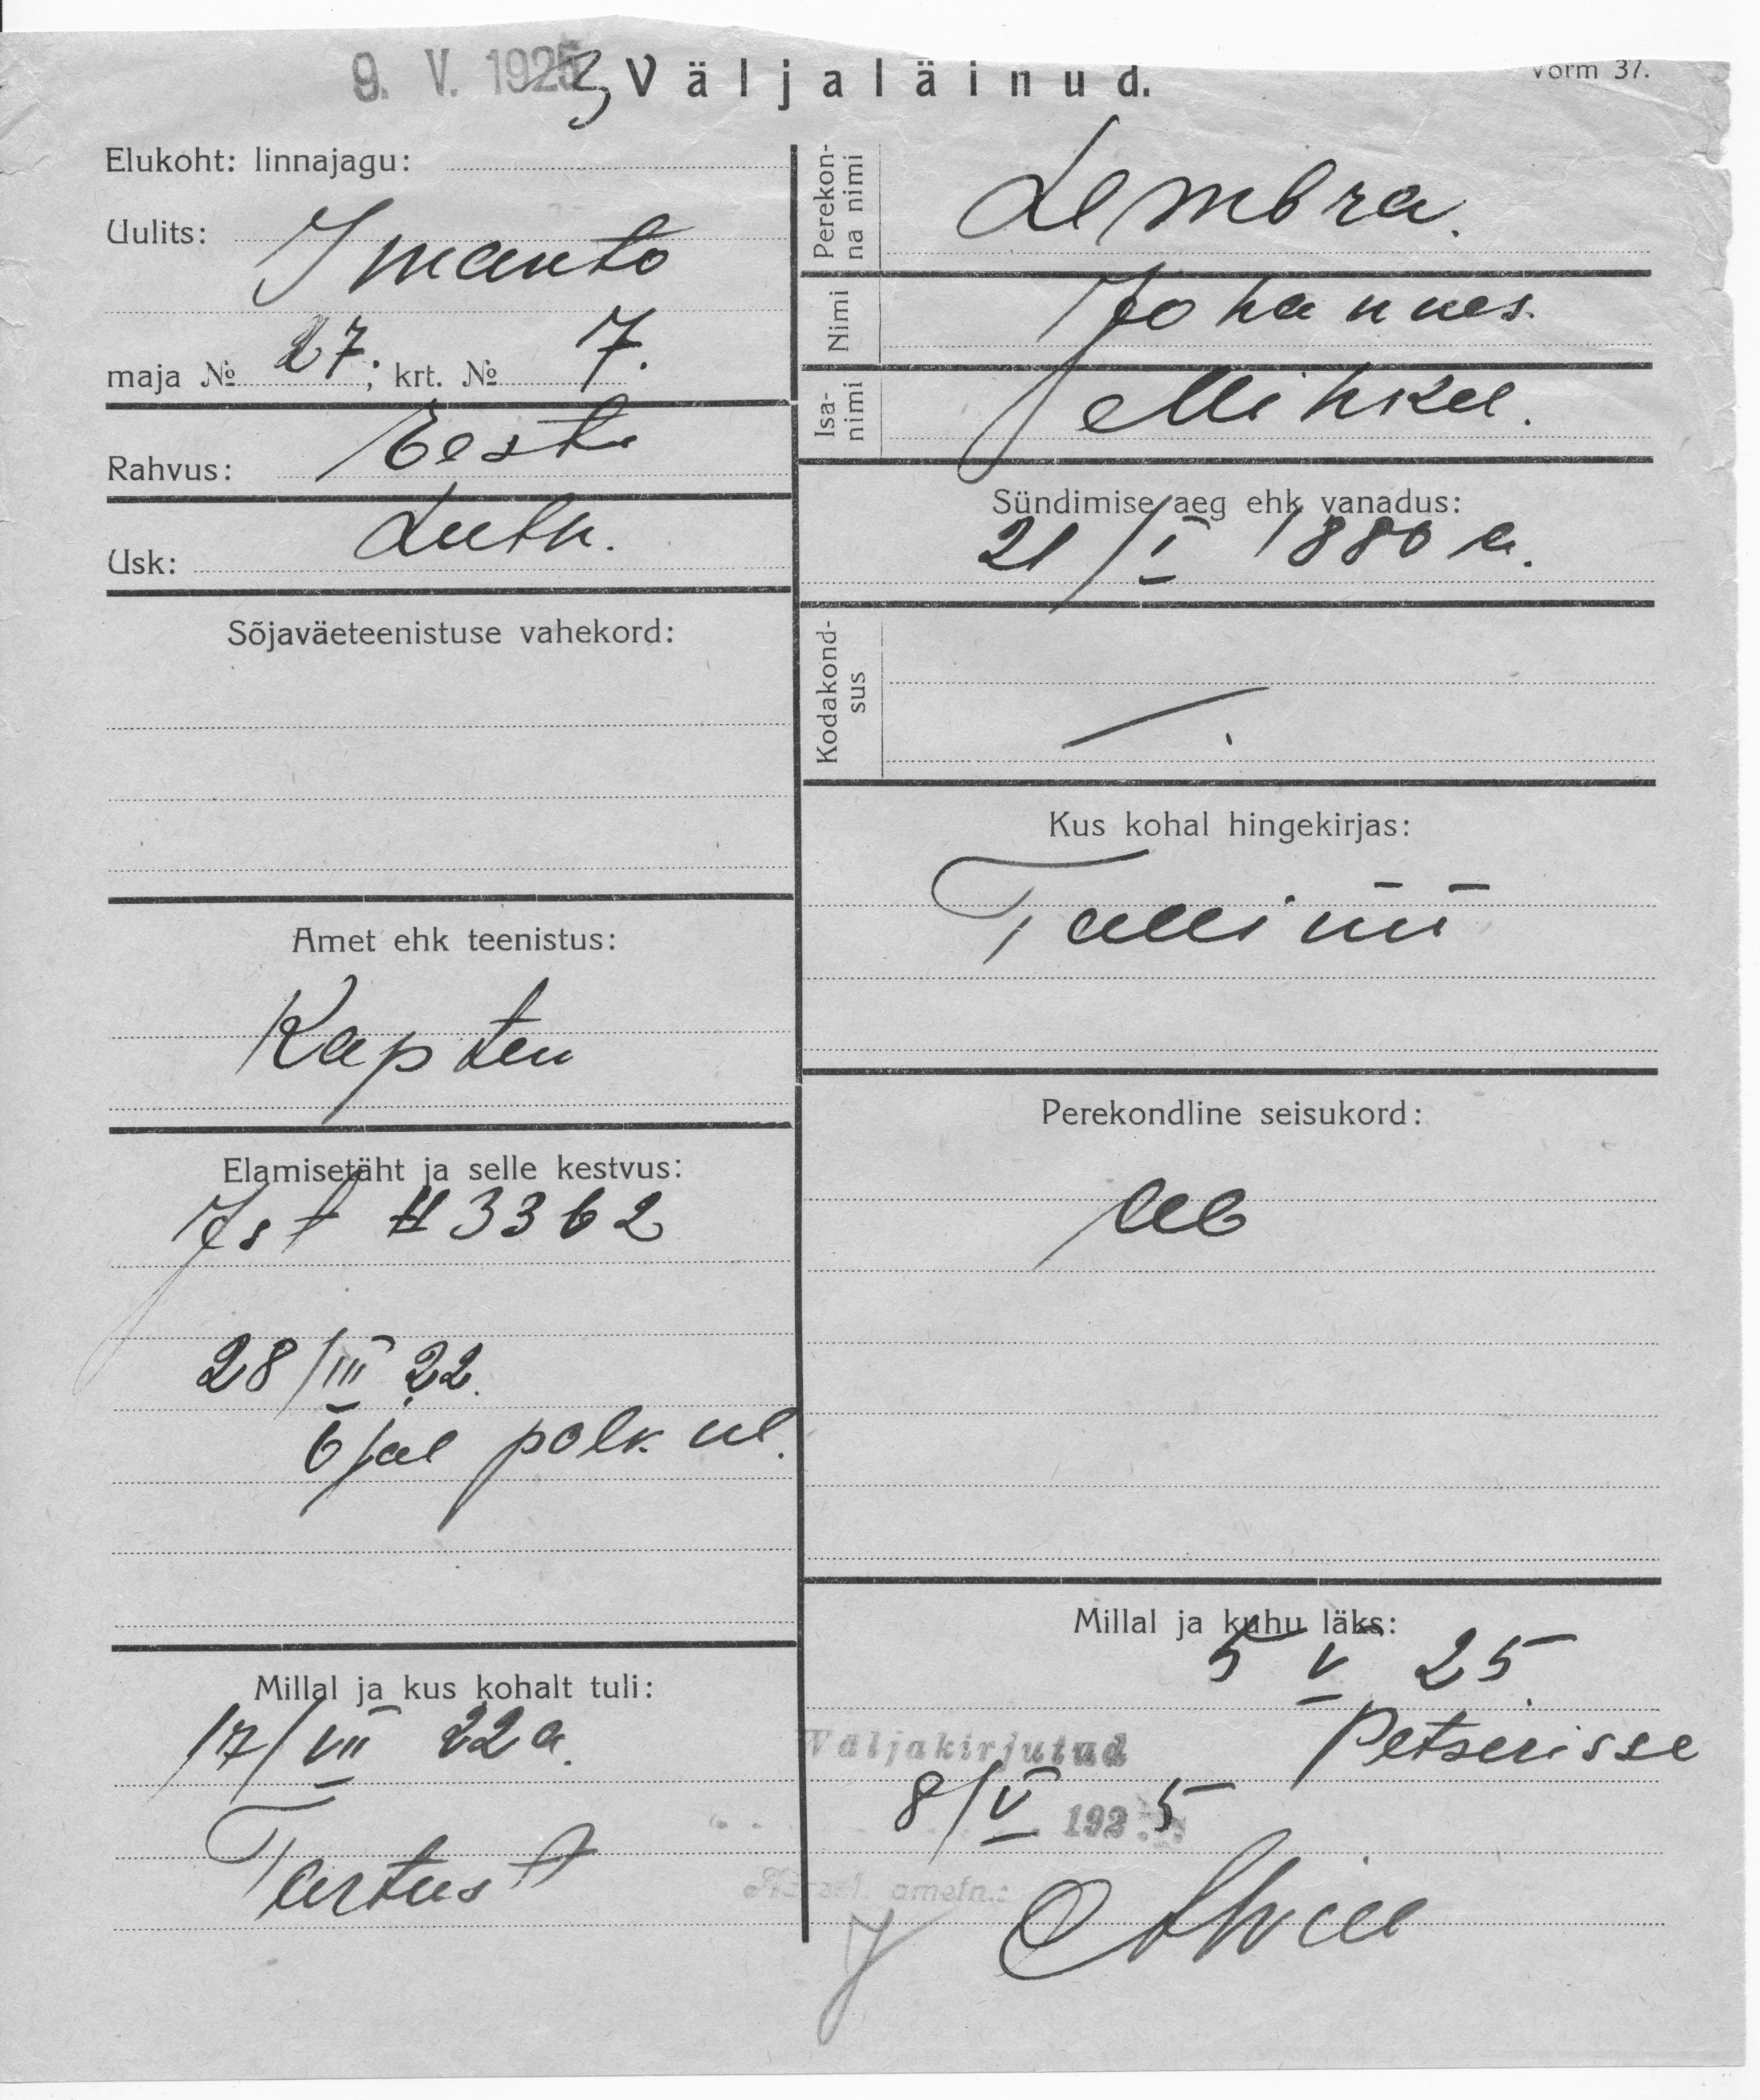 9. V. 1925
Väljaläinud.
Vorm 37.
Elukoht: linnajagu:
Uulits: Imanto
maja № 27; krt. № 7.
Rahvus: Eesti
Usk: Luth.
Sõjaväeteenistuse vahekord:
Amet ehk teenistus:
Kapten
Elamisetäht ja selle kestvus:
Ist № 3362
28/III 22.
6 jal polk ül.
Millal ja kus kohalt tuli:
17/VII 22 a.
Tartust
Perekonna nimi
Lembra.
Nimi
Johannes.
Isanimi
Mihkel.
Sündimise aeg ehk vanadus:
21/I 1880 a.
Kodakondsus
Kus kohal hingekirjas:
Tallinn
Perekondline seisukord:
Millal ja kuhu läks:
5 V 25
Petserisse
Väljakirjutud
8/V 1925
ametn.: